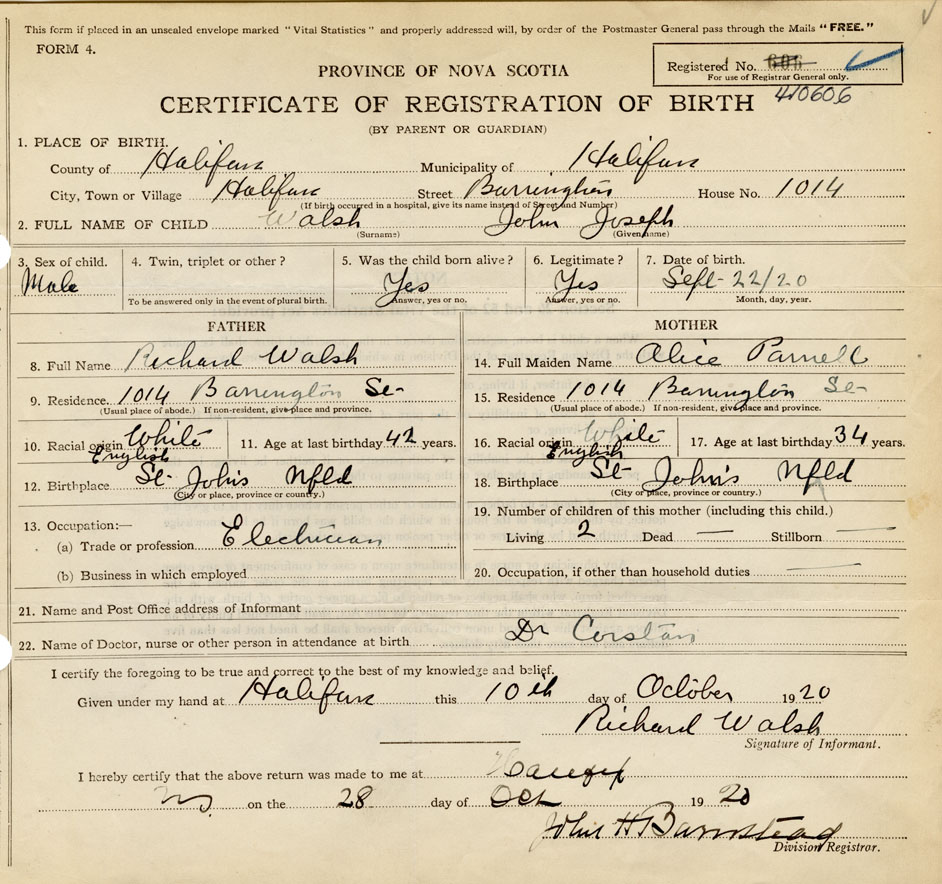 This form if placed in an unsealed envelope marked "Vital Statistics" and properly addressed will, by order of the Postmaster General pass through the Mails "FREE."
FORM 4.
Registered No. 606
For use of Registrar General only.
410606
PROVINCE OF NOVA SCOTIA
CERTIFICATE OF REGISTRATION OF BIRTH
(BY PARENT OR GUARDIAN)
1. PLACE OF BIRTH.
County of Halifax Municipality of Halifax
City, Town or Village Halifax Street Barrington House No. 1014
(If birth occurred in a hospital, give its name instead of Street and Number)
2. FULL NAME OF CHILD Walsh John Joseph
(Surname) (Given name)
3. Sex of child. 4. Twin, triplet or other? 5. Was the child born alive? 6. Legitimate? 7. Date of birth.
Male Yes Yes Sept- 22/20
To be answered only in the event of plural birth. Answer, yes or no. Answer, yes or no. Month, day, year.
FATHER MOTHER
8. Full Name Richard Walsh 14. Full Maiden Name Alice Parnell
9. Residence. 1014 Barrington St- 15. Residence 1014 Barrington St-
(Usual place of abode.) If non-resident, give place and province. (Usual place of abode.) If non-resident, give place and province.
10. Racial origin White English 11. Age at last birthday 42 years. 16. Racial origin White English 17. Age at last birthday 34 years.
12. Birthplace St- John's Nfld 18. Birthplace St- John's Nfld
(City or place, province or country.) (City or place, province or country.)
13. Occupation:— 19. Number of children of this mother (including this child.)
(a) Trade or profession Electrician Living 2 Dead — Stillborn —
(b) Business in which employed 20. Occupation, if other than household duties —
21. Name and Post Office address of Informant
22. Name of Doctor, nurse or other person in attendance at birth Dr
I certify the foregoing to be true and correct to the best of my knowledge and belief.
Given under my hand at Halifax this 10th day of October 1920
Richard Walsh
Signature of Informant.
I hereby certify that the above return was made to me at Halifax
NS on the 28 day of Oct 1920
John H Barnstead
Division Registrar.